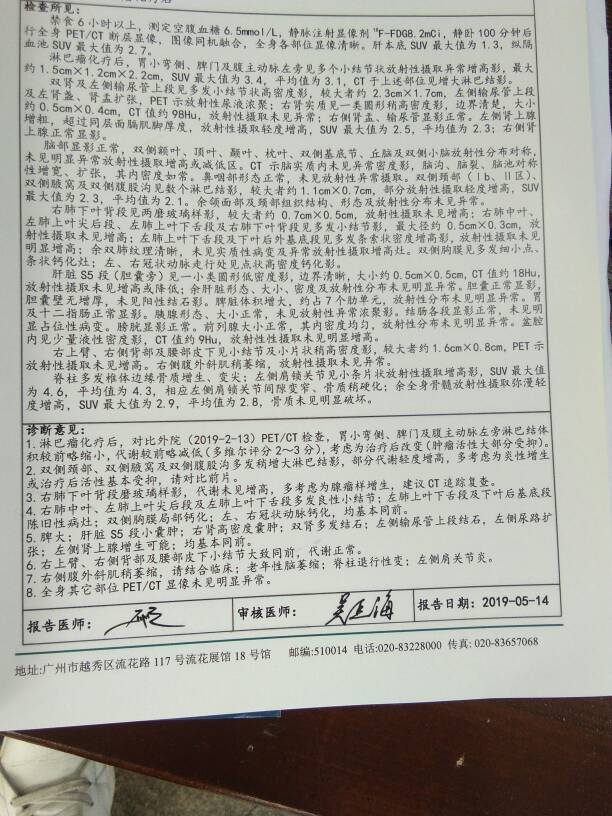 检查所见:
禁食6小时以上，测定空腹血糖6.5mmol/L，静脉注射显像剂¹⁸F-FDG8.2mCi，静卧100分钟后
行全身PET/CT断层显像，图像同机融合，全身各部位显像清晰。肝本底SUV最大值为1.3，纵隔
血池SUV最大值为2.7。
淋巴瘤化疗后，胃小弯侧、脾门及腹主动脉左旁见多个小结节状放射性摄取异常增高影，最大
约1.5cm×1.2cm×2.2cm，SUV最大值为3.4，平均值为3.1，CT于上述部位见增大淋巴结影。
双肾及左侧输尿管上段见多发小结节状高密度影，较大者约2.3cm×1.7cm，左侧输尿管上段
及左肾盏、肾盂扩张，PET示放射性尿液浓聚；右肾实质见一类圆形稍高密度影，边界清楚，大小
约0.5cm×0.4cm，CT值约98Hu，放射性摄取未见异常；右侧肾盂、输尿管显影正常。左侧肾上腺
增粗，超过同层面膈肌脚厚度，放射性摄取轻度增高，SUV最大值为2.5，平均值为2.3；右侧肾
上腺正常显影。
脑部显影正常，双侧额叶、顶叶、颞叶、枕叶、双侧基底节、丘脑及双侧小脑放射性分布对称，
未见明显异常放射性摄取增高或减低区。CT示脑实质内未见异常密度影，脑沟、脑裂、脑池对称
性增宽、扩张，其内密度如常。鼻咽部形态正常，未见放射性异常摄取。双侧颈部（Ⅰb、Ⅱ区）、
双侧腋窝及双侧腹股沟见数个淋巴结影，较大者约1.1cm×0.7cm，部分放射性摄取轻度增高，SUV
最大值为2.3，平均值为2.1。余颌面部及颈部组织结构、形态及放射性分布未见异常。
右肺下叶背段见两磨玻璃样影，较大者约0.7cm×0.5cm，放射性摄取未见增高；右肺中叶、
左肺上叶尖后段、左肺上叶下舌段及右肺下叶背段见多发小结节影，最大径约0.5cm×0.3cm，放
射性摄取未见增高；左肺上叶下舌段及下叶后外基底段见多发条索状密度增高影，放射性摄取未见
明显增高；余双肺纹理清晰，未见实质性病变及异常放射性摄取增高灶。双侧胸膜见多发细小点、
条状钙化灶；左、右冠状动脉走行处见点状高密度钙化影。
肝脏S5段（胆囊旁）见一小类圆形低密度影，边界清晰，大小约0.5cm×0.5cm，CT值约18Hu，
放射性摄取未见增高或降低；余肝脏形态、大小、密度及放射性分布未见明显异常。胆囊正常显影，
胆囊壁无增厚，未见阳性结石影。脾脏体积增大，约占7个肋单元，放射性分布未见明显异常。胃
及十二指肠正常显影。胰腺形态、大小正常，未见放射性异常浓聚影。结肠各段显影正常，未见明
显占位性病变。膀胱显影正常。前列腺大小正常，其内密度均匀，放射性分布未见明显异常。盆腔
内见少量液性密度影，CT值约9Hu，放射性摄取未见明显增高。
右上臂、右侧背部及腰部皮下见小结节及小片状稍高密度影，较大者约1.6cm×0.8cm，PET示
放射性摄取未见增高。右侧腹外斜肌稍萎缩，放射性摄取未见异常。
脊柱多发椎体边缘骨质增生、变尖；左侧肩锁关节见小条片状放射性摄取增高影，SUV最大值
为4.6，平均值为4.3，相应左侧肩锁关节间隙变窄、骨质稍硬化；余全身骨髓放射性摄取弥漫轻
度增高，SUV最大值为2.9，平均值为2.8，骨质未见明显破坏。
诊断意见:
1.淋巴瘤化疗后，对比外院（2019-2-13）PET/CT检查，胃小弯侧、脾门及腹主动脉左旁淋巴结体
积较前略缩小，代谢较前略减低（多维尔评分2～3分），考虑为治疗后改变（肿瘤活性大部分受抑）。
2.双侧颈部、双侧腋窝及双侧腹股沟多发稍增大淋巴结影，部分代谢轻度增高，多考虑为炎性增生
或治疗后活性基本受抑，请对比前片。
3.右肺下叶背段磨玻璃样影，代谢未见增高，多考虑为腺瘤样增生，建议CT追踪复查。
4.右肺中叶、左肺上叶尖后段及左肺上叶下舌段多发良性小结节；左肺上叶下舌段及下叶后基底段
陈旧性病灶；双侧胸膜局部钙化；左、右冠状动脉钙化，均基本同前。
5.脾大；肝脏S5段小囊肿；右肾高密度囊肿；双肾多发结石；左侧输尿管上段结石，左侧尿路扩
张；左侧肾上腺增生可能；均基本同前。
6.右上臂、右侧背部及腰部皮下小结节大致同前，代谢正常。
7.右侧腹外斜肌稍萎缩，请结合临床；老年性脑萎缩；脊柱退行性变；左侧肩关节炎。
8.全身其它部位PET/CT显像未见明显异常。
报告医师: 审核医师: 报告日期:2019-05-14
地址:广州市越秀区流花路117号流花展馆18号馆 邮编:510014 电话:020-83228000 传真:020-83657068